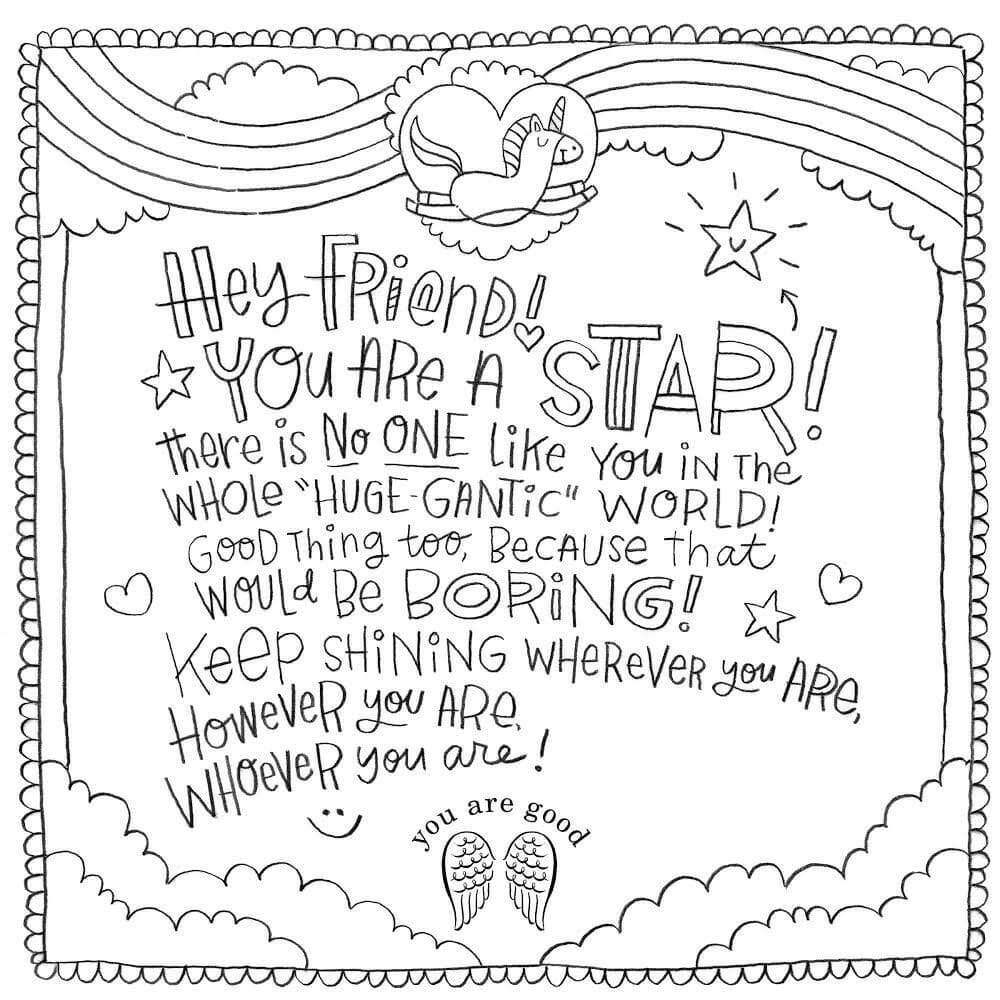 Hey FRiend!
YOU ARe A STAR!
there is No ONE Like YOU iN The
WHOLe "HUGE-GANTiC" WORLD!
GOOD Thing too, BeCAUSe that
WOULd Be BORiNG!
KeeP SHiNiNG WHeReVeR you ARe,
HoweVeR you ARe,
WHOeVeR you are!
you are good